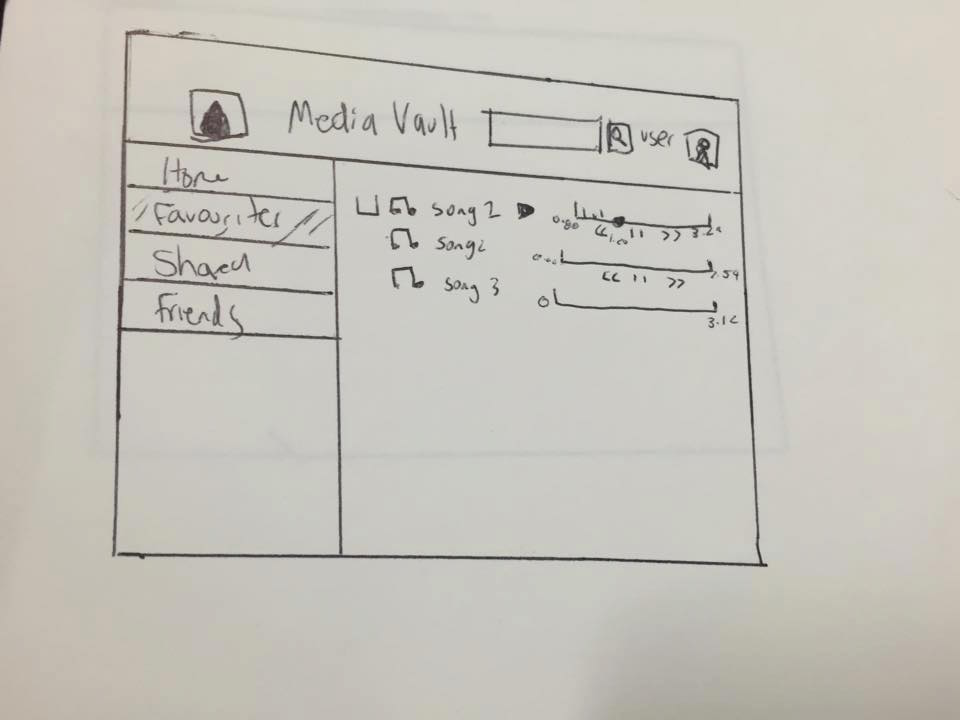 Media Vault user
Home
Favourites
Shared
Friends
song 2
0.00 1.00 << 11 >>
song 2
<< 11 >>
song 3
0